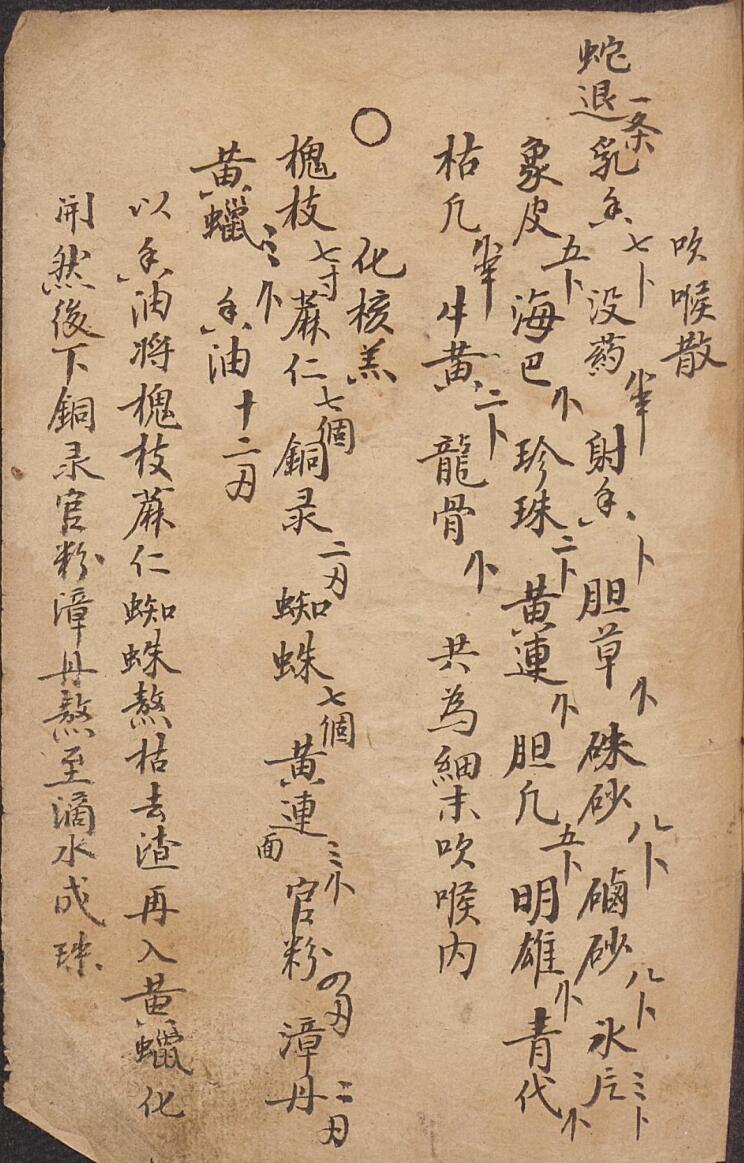 吹喉散
蛇退一条 乳香七卜 没药 射香卜 胆草 硃砂八卜 硇砂八卜 氷片三卜
象皮五卜 海巴 珍珠二卜 黄連 胆凡五卜 明雄 青代
枯凡 牛黄二卜 龍骨 共為細末吹喉内
○
化核羔
槐枝七寸 蔴仁七個 銅录二刃 蜘蛛七個 黄連面三 官粉四刃 漳丹二刃
黄蠟三 香油十二刃
以香油将槐枝蔴仁蜘蛛熬枯去渣再入黄蠟化
開然後下銅录官粉漳丹熬至滴水成珠